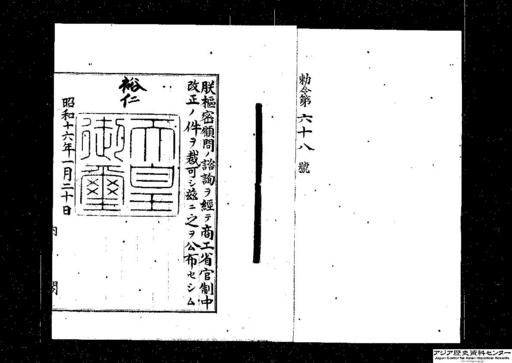 勅令第六十八號
朕樞密顧問ノ諮詢ヲ經テ商工省官制中
改正ノ件ヲ裁可シ茲ニ之ヲ公布セシム
裕仁
天皇御璽
昭和十六年一月二十日
内閣
アジア歴史資料センター
Japan Center for Asian Historical Records